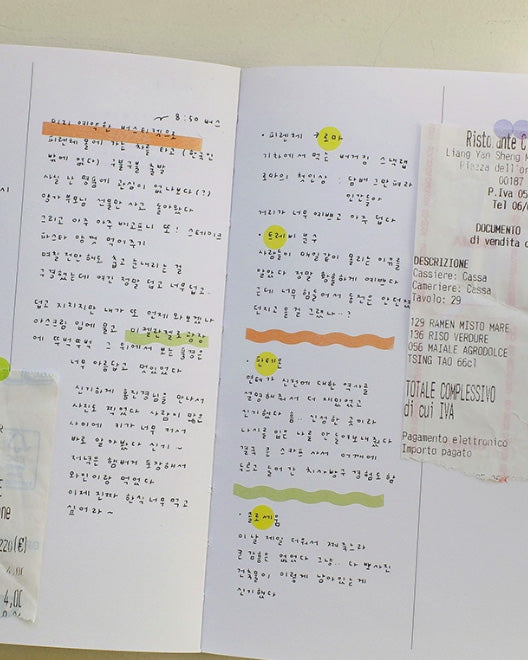 ~ 8:50 버스
미리 예약한 버스티켓으로
피렌체 몰에 가는 차를 타고 (한국인
밖에 없다) 구불구불 출발
사실 난 명품에 관심이 없나보다(?)
엄마 부탁 선물만 사고 돌아왔다
그리고 아주 아주 비고트니 또! 스테이크
파스타 양껏 먹어주기
며칠 전만해도 춥고 눈내리는 걸
구경했는데 여긴 정말 덥고 너무 덥고..
덥고 지치지만 내가 또 언제 와보겠나
아스크림 입에 물고 미켈란젤로 광장
에 뚜벅뚜벅 그 위에서 보는 풍경은
너무 아름답고 멋있었다
신기하게 윤진경님을 만나서
사진도 찍었다 사람이 많은
사이에 키가 너무 커서
바로 알아봤다 신기~
저녁은 햄버거 포장해서
와인이랑 먹었다
이제 진짜 한식 너무 먹고
싶어라~
• 피렌체 → 로마
기차에서 먹는 버거킹 스낵랩
로마의 첫인상 : 담배
거리가 너무 예쁘고 아주 덥다
• 트레비 분수
사람들이 매일같이 몰리는 이유를
알았다 정말 황홀하게 예쁘다
근데 너무 힘들어서 동전은 안 던졌
던지고 올걸 그랬나..?
• 판테온
언터가 신전에 대한 역사를
설명해줘서 더 재밌었고
신기했다 음.. 신성한 곳이라
나시를 입은 나를 안 들여보내줬다
결국 큰 스카프 사서 어깨에
두르고 들어간 치사방구 경험도 함
• 콜로세움
이 날 제일 더워서 쩌죽느라
큰 감흥은 없었다 그냥.. 다 뿌사진
건축물이 이렇게 남아있는게
신기했다
Ristorante C
Liang Yan Sheng
Piazza dell'or
00187
P.Iva 05
Tel 06/
DOCUMENTO
di vendita
DESCRIZIONE
Cassiere: Cassa
Cameriere: Cassa
Tavolo: 29
129 RAMEN MISTO MARE
136 RISO VERDURE
056 MAIALE AGRODOLCE
TSING TAO 66cl
TOTALE COMPLESSIVO
di cui IVA
Pagamento elettronico
Importo pagato
one
(€)
4,00
4,00